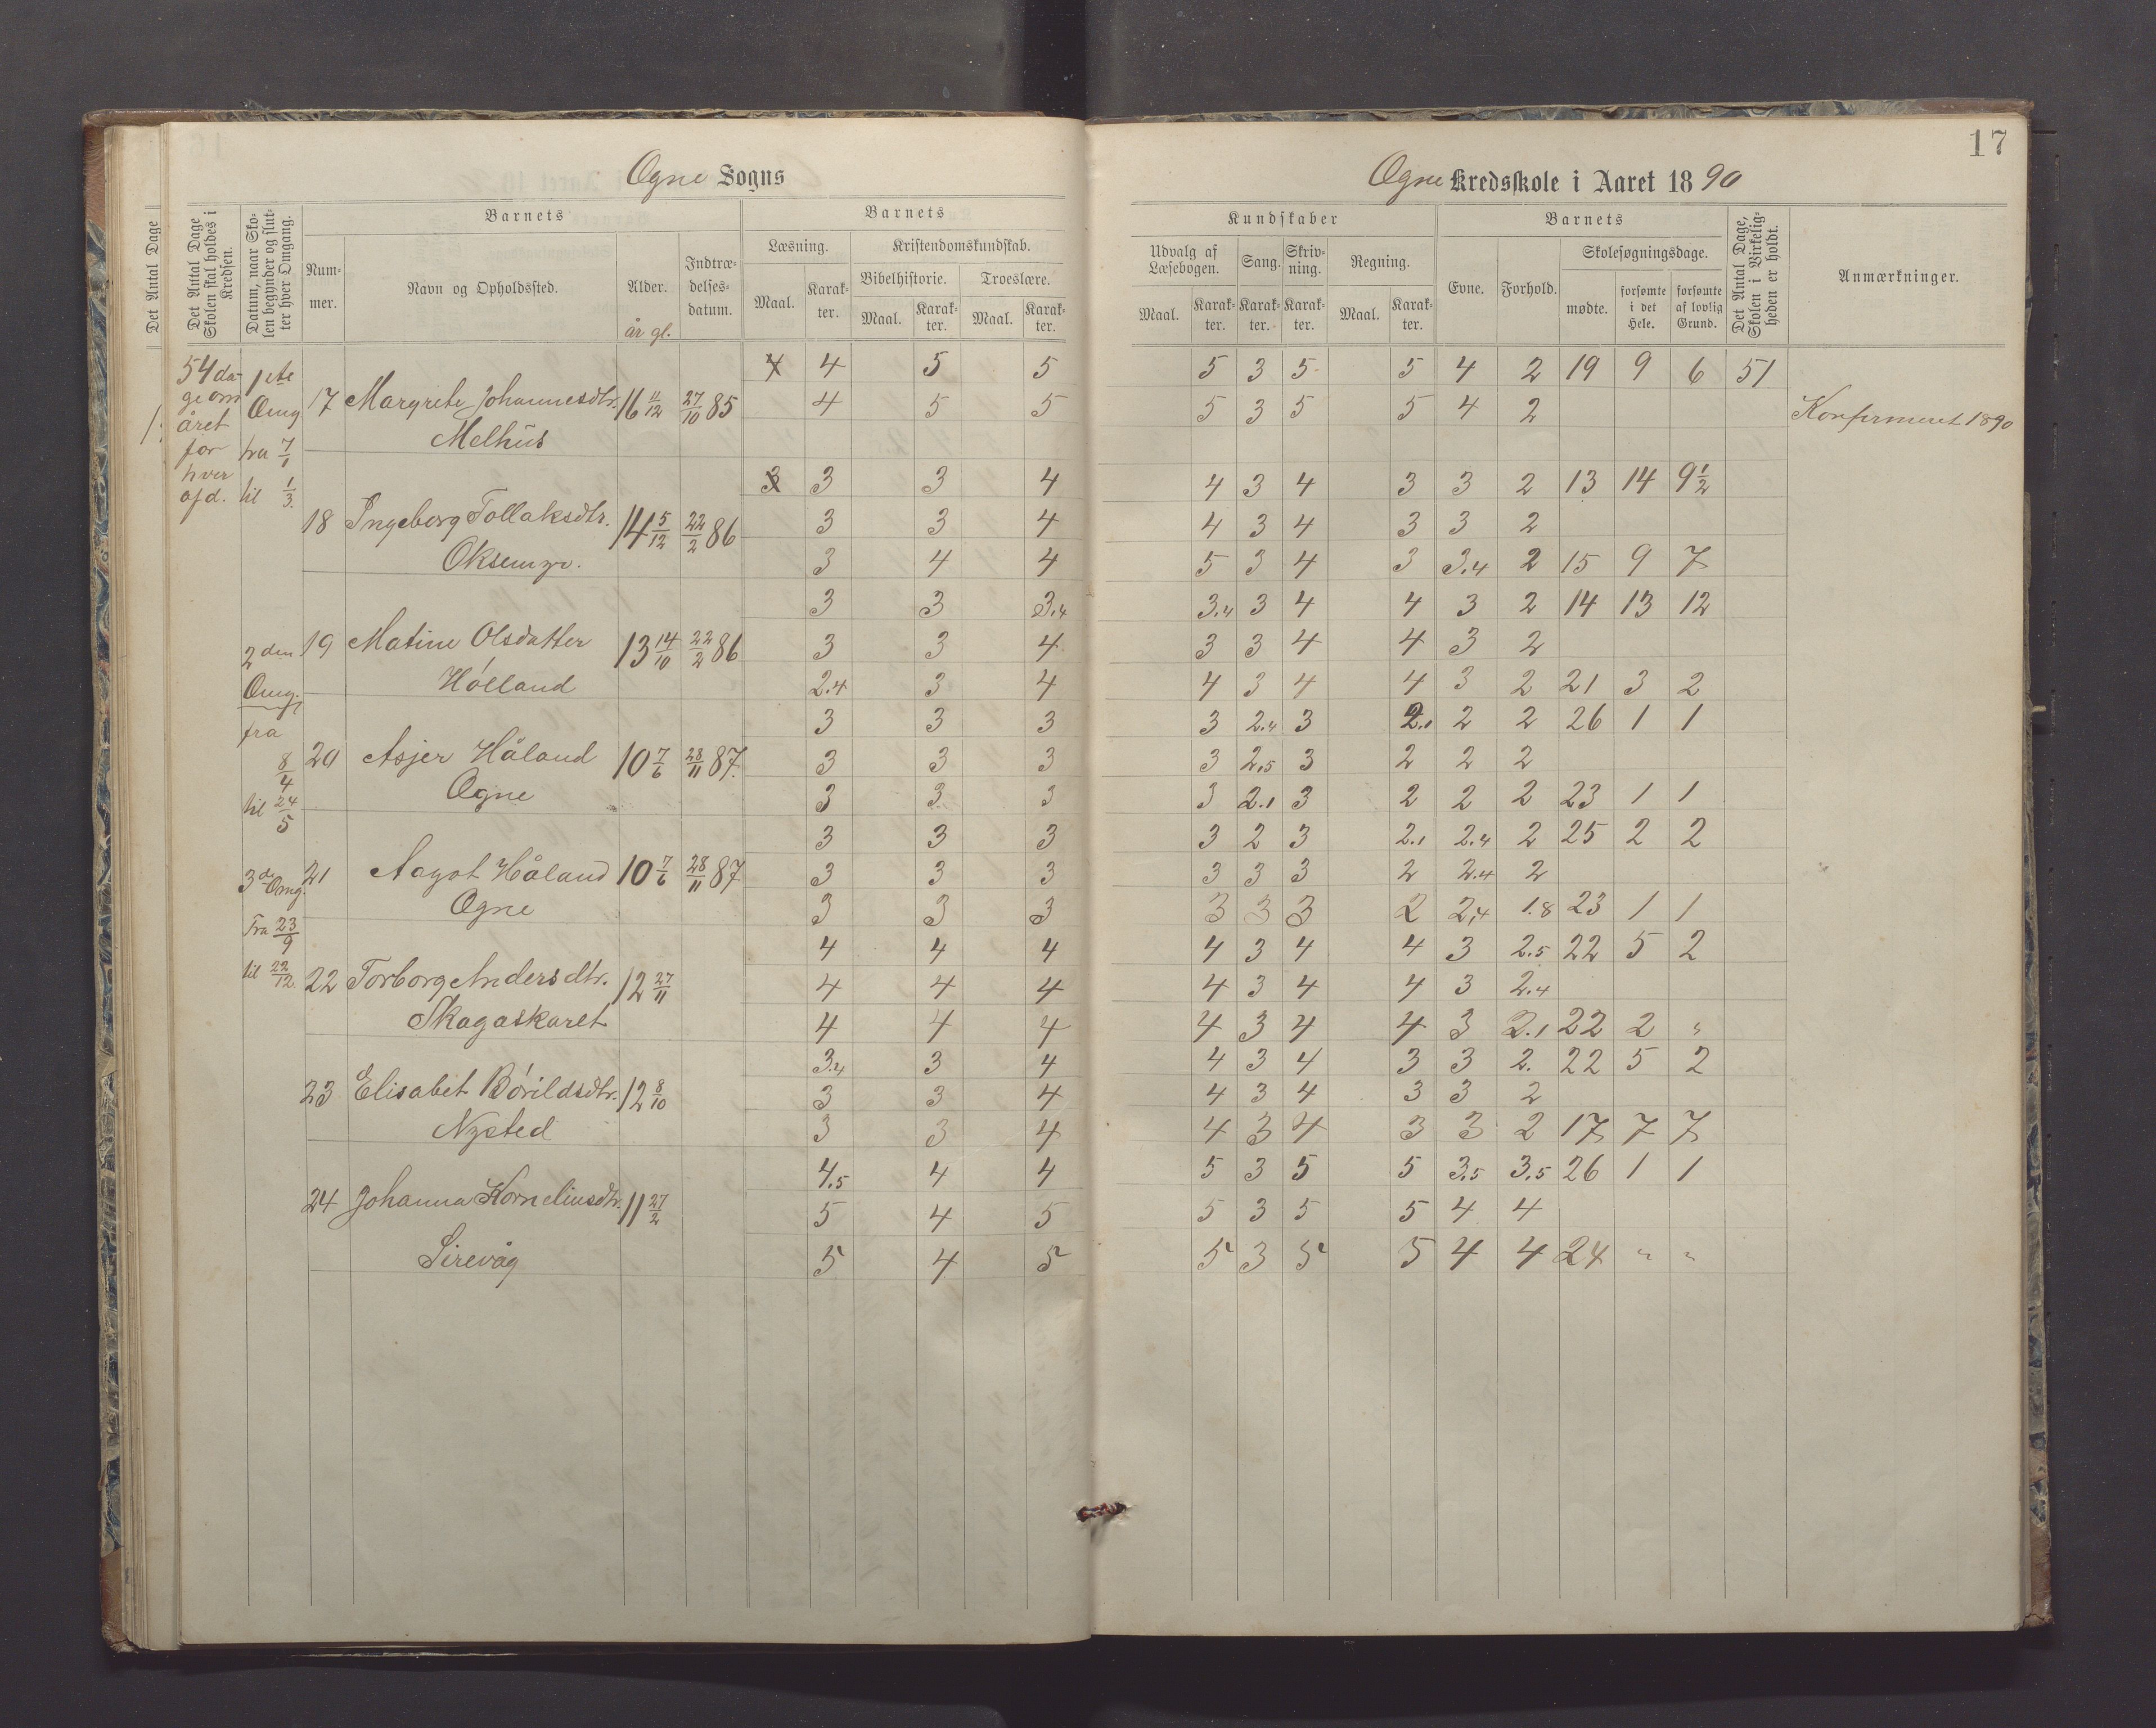 17
Ogne Sogns
Ogne Kredsskole i Aaret 1890
Det Antal Dage
Det Antal Dage Skolen skal holdes i Kredsen.
Datum, naar Skolen begynder og slutter hver Omgang.
Barnets
Nummer.
Navn og Opholdssted.
Alder.
år gl.
Indtrædelsesdatum.
Barnets
Læsning.
Maal.
Karakter.
Kristendomskundskab.
Bibelhistorie.
Maal.
Karakter.
Troeslære.
Maal.
Karakter.
Kundskaber
Udvalg af Læsebogen.
Maal.
Karakter.
Sang.
Karakter.
Skrivning.
Karakter.
Regning.
Maal.
Karakter.
Barnets
Evne.
Forhold.
Skolesøgningsdage.
mødte.
forsømte i det Hele.
forsømte af lovlig Grund.
Det Antal Dage, Skolen i Virkeligheden er holdt.
Anmærkninger.
54 da-
ge om
året
for
hver
afd.
1ste
Omg
fra 7/1
til 1/3.
2den
Omg.
fra
8/4
til 24/5
3de Omg.
Fra 23/9
til 22/12.
4 5 5 5 3 5 5 4 2 19 9 6 51
17 Margrete Johannesdtr. 16 11/12 27/10 85 4 5 5 5 3 5 5 4 2 Konfirmeret 1890
Melhus
3 3 4 4 3 4 3 3 2 13 14 9 1/2
18 Ingeborg Tollaksdtr. 14 5/12 22/2 86 3 3 4 4 3 4 3 3 2
Oksemyr. 3 4 4 5 3 4 3 3.4 2 15 9 7
3 3 3.4 3.4 3 4 4 3 2 14 13 12
19 Matine Olsdatter 13 14/10 22/2 86 3 3 4 3 3 4 4 3 2
Hólland 2.4 3 4 4 3 4 4 3 2 21 3 2
3 3 3 3 2.4 3 2.1 2 2 26 1 1
20 Asjer Håland 10 7/6 28/11 87. 3 3 3 3 2,5 3 2 2 2
Ogne 3 3 3 3 2.1 3 2 2 2 23 1 1
3 3 3 3 2 3 2.1 2.4 2 25 2 2
21 Aagot Håland 10 7/6 28/11 87 3 3 3 3 3 3 2 2.4 2
Ogne 3 3 3 3 3 3 2 2,4 1.8 23 1 1
4 4 4 4 3 4 4 3 2.5 22 5 2
22 Torborg Andersdtr. 12 27/11 4 4 4 4 3 4 4 3 2.4
Skagaskaret 4 4 4 4 3 4 4 3 2.1 22 2 "
3.4 3 4 4 3 4 3 3 2. 22 5 2
23 Elisabet Bórildsdtr. 12 8/10 3 3 4 4 3 4 3 3 2
Nysted 3 3 4 4 3 4 3 3 2 17 7 7
4.5 4 4 5 3 5 5 3.5 3.5 26 1 1
24 Johanna Korneliusdtr. 11 27/2 5 4 5 5 3 5 5 4 4
Sirevåg 5 4 5 5 3 5 5 4 4 24 " "